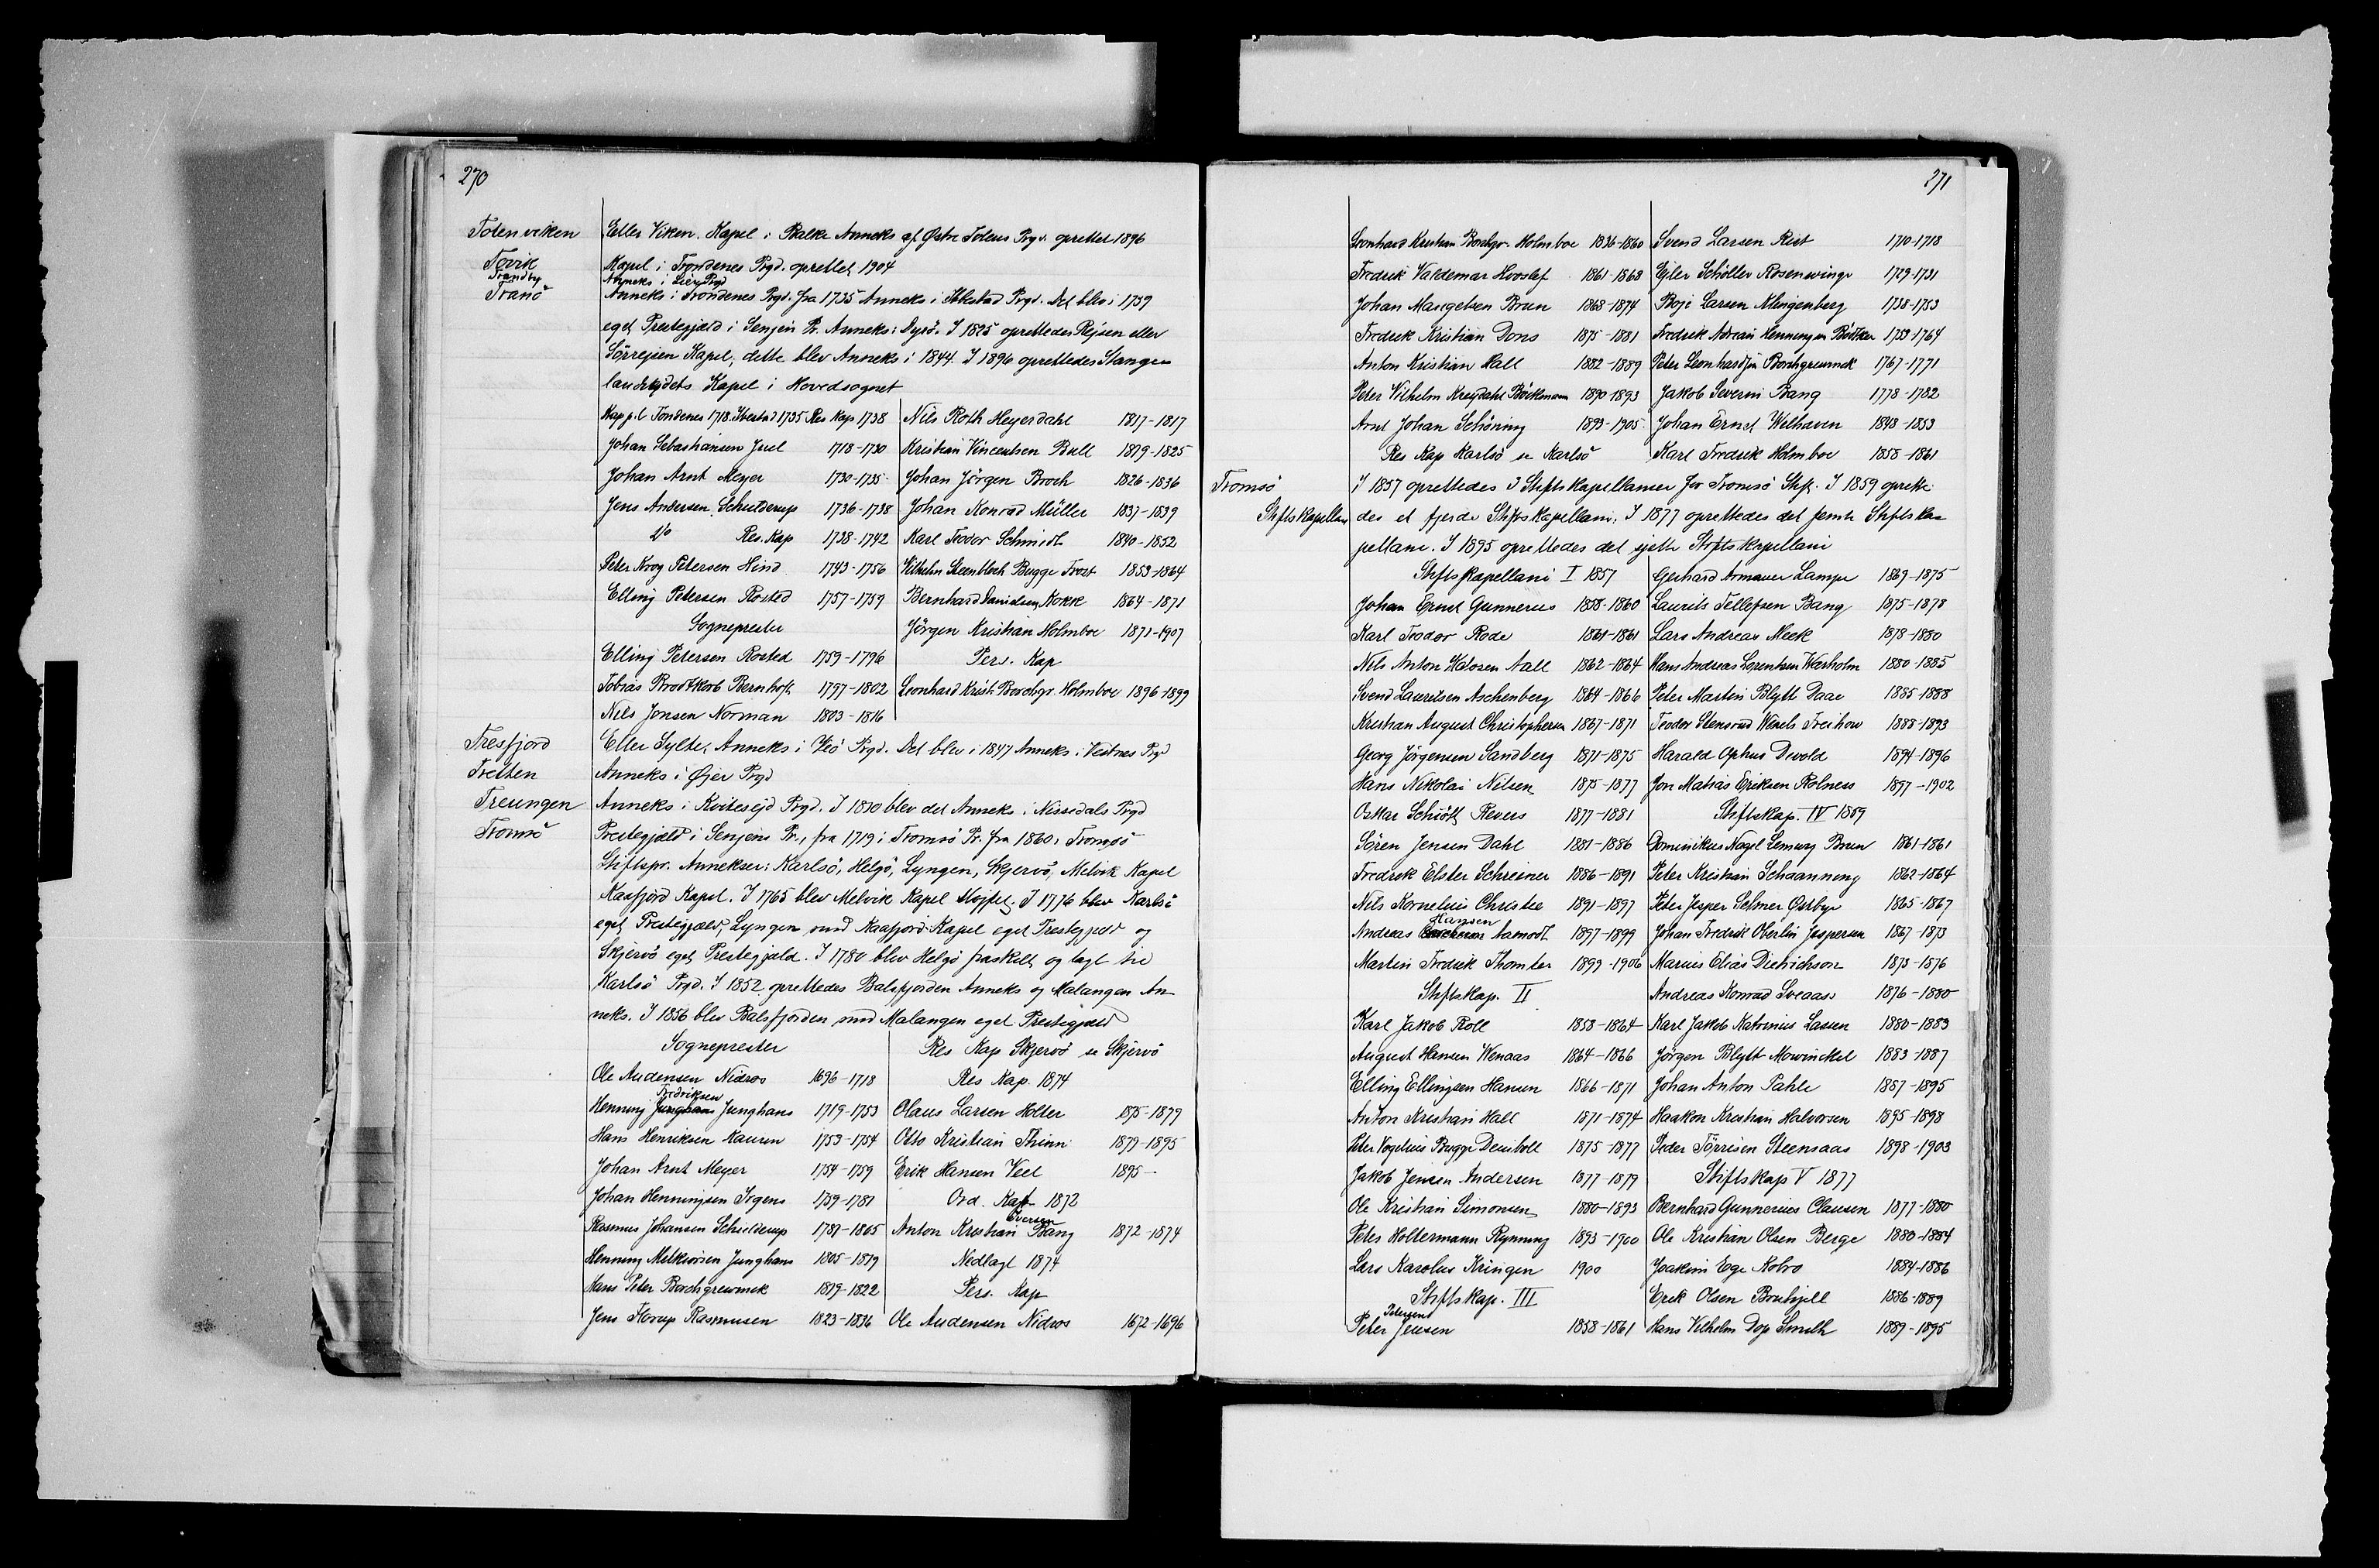 270
Totenviken Eller Viken. Kapel i Balke Anneks af Østre Totens Prgd. oprettet 1896
Tovik Kapel i Trondenes Prgd. oprettet 1904
Tranby Anneks i Lier Prgd
Tranö Anneks i Trondenes Prgd. fra 1735 Anneks i Ibbestad Prgd. Det blev i 1739
eget Prestegjæld i Senjen Pr. Anneks: Dyrö. I 1825 oprettedes Rejsen eller
Sörrejsen Kapel, dette blev Anneks i 1844. I 1896 oprettedes Stangn
landejdets Kapel i Hovedsognet
Kap p.l. Tondenes 1718. Ibestad 1735 Res Kap 1738
Johan Sebastiansen Juel 1718-1730
Johan Arnt Meyer 1730-1735
Jens Andersen Schielderup 1736-1738
do Res. Kap 1738-1742
Peter Krog Petersen Hind 1743-1756
Elling Petersen Rosted 1757-1759
Sogneprester
Elling Petersen Rosted 1759-1796
Tobias Brodtkorb Bernhoft 1797-1802
Nils Jonsen Norman 1803-1816
Nils Roth Heyerdahl 1817-1817
Kristian Vincentsen Bull 1819-1825
Johan Jörgen Broch 1826-1836
Johan Konrad Müller 1837-1839
Karl Teodor Schmidt 1840-1852
Vilhelm Steenbloch Bugge Frost 1853-1864
Bernhard Davidsen Kokk 1864-1871
Jörgen Kristian Holmboe 1871-1907
Pers. Kap
Leonhard Krist. Borchgr. Holmboe 1896-1899
Tresfjord Eller Sylte, Anneks i Veö Prgd. Det blev i 1847 Anneks i Vestnes Prgd
Tretten Anneks i Öjer Prgd
Treungen Anneks i Kvitesejd Prgd. I 1810 blev det Anneks i Nissedals Prgd
Tromsö Prestegjæld i Senjens Pr., fra 1719 i Tromsö Pr. fra 1860 i Tromsö
Stiftspr. Annekser: Karlsö, Helgö, Lyngen, Skjervö, Melvik Kapel
Kaafjord Kapel. I 1765 blev Melvik Kapel slöjfet. I 1776 blev Karlsö
eget Prestegjæld, Lyngen med Kaafjord Kapel eget Prestegjæld og
Skjervö eget Prestegjæld. I 1780 blev Helgö fraskilt og lagt til
Karlsö Prgd. I 1852 oprettedes Balsfjorden Anneks og Malangen An
neks. I 1856 blev Balsfjorden med Malangen eget Prestegjæld
Sogneprester
Ole Audensen Nidros 1696-1718
Fredriksen
Henning Junghans Junghans 1719-1753
Hans Henriksen Kauren 1753-1754
Johan Arnt Meyer 1754-1759
Johan Henningsen Irgens 1759-1781
Rasmus Johansen Schielderup 1781-1805
Henning Melkiorsen Junghans 1805-1819
Hans Peter Borchgrewink 1819-1822
Jens Horup Rasmusen 1823-1836
Res Kap Skjervö se Skjervö
Res Kap. 1874
Olaus Larsen Holter 1875-1879
Otto Kristian Thinn 1879-1895
Erik Hansen Veel 1895-
Ord. Kap 1872
Iversen
Anton Kristian Bang 1872-1874
Nedlagt 1874
Pers. Kap
Ole Audensen Nidros 1672-1696
271
Leonhard Kristian Borchgr. Holmboe 1836-1860
Fredrik Valdemar Hvoslef 1861-1868
Johan Mangelsen Brun 1868-1874
Fredrik Kristian Dons 1875-1881
Anton Kristian Hall 1882-1889
Peter Vilhelm Kreydahl Böckmann 1890-1893
Arnt Johan Schöning 1893-1905
Res Kap Karlsö se Karlsö
Svend Larsen Rist 1710-1718
Ejler Schöller Rosenwinge 1729-1731
Boje Larsen Klingenberg 1738-1753
Fredrik Adrean Henningsen Bödtker 1753-1764
Peter Leonhardsen Borchgrewink 1767-1771
Jakob Severin Bang 1778-1782
Johan Ernst Welhaven 1848-1853
Karl Fredrik Holmboe 1858-1861
Tromsö I 1857 oprettedes 3 Stiftskapellanier for Tromsö Stift. I 1859 oprette
Stiftskapellan des et fjerde Stiftskapellani, I 1877 oprettedes det femte Stiftska
pellani. I 1895 oprettedes det sjette Stiftskapellani
Stiftskapellani I 1857
Johan Ernst Gunnerus 1858-1860
Karl Teodor Rode 1861-1861
Nils Anton Aall 1862-1864
Svend Lauritsen Aschenberg 1864-1866
Kristian August Christophersen 1867-1871
Georg Jörgensen Sandberg 1871-1875
Hans Nikolai Nilsen 1875-1877
Oskar Schiött Revers 1877-1881
Sören Jensen Dahl 1881-1886
Fredrik Elster Schreiner 1886-1891
Nils Kornelius Christie 1891-1897
Hansen
Andreas Aamodt 1897-1899
Martin Fredrik Thomter 1899-1906
Stiftskap. II
Karl Jakob Roll 1858-1864
August Hansen Wenaas 1864-1866
Elling Ellingsen Hansen 1866-1871
Anton Kristian Hall 1871-1874
Peter Vogelius Bugge Deinboll 1875-1877
Jakob Jensen Andersen 1877-1879
Ole Kristian Simonsen 1880-1893
Peter Holtermann Rynning 1893-1900
Lars Karolus Kringen 1900
Stiftskap. III
Petersens
Peter Jensen 1858-1861
Gerhard Armauer Lampe 1869-1875
Laurits Tellefsen Bang 1875-1878
Lars Andreas Meek 1878-1880
Hans Andreas Lorentsen Warholm 1880-1885
Peter Martin Blytt Daae 1885-1888
Teodor Stensrud Wexels Treihow 1888-1893
Harald Ophus Devold 1894-1896
Jon Matias Eriksen Rolness 1897-1902
Stiftskap. IV 1859
Dominikus Nagel Lemwig Brun 1861-1861
Peter Kristian Schaanning 1862-1864
Peter Jesper Selmer Østbye 1865-1867
Johan Fredrik Oberlin Jespersen 1867-1873
Marius Elias Dietrichson 1873-1876
Andreas Konrad Sveaass 1876-1880
Karl Jakob Katrinius Lassen 1880-1883
Jörgen Blytt Mowinckel 1883-1887
Johan Anton Pahle 1887-1895
Haakon Kristian Halvorsen 1895-1898
Peder Törrisen Steensaas 1898-1903
Stiftskap V 1877
Bernhard Gunnerius Clausen 1877-1880
Ole Kristian Olsen Berge 1880-1884
Joakim Kolvo 1884-1886
Erik Olsen Bouhjell 1886-1889
Hans Vilhelm Dop Smith 1889-1895